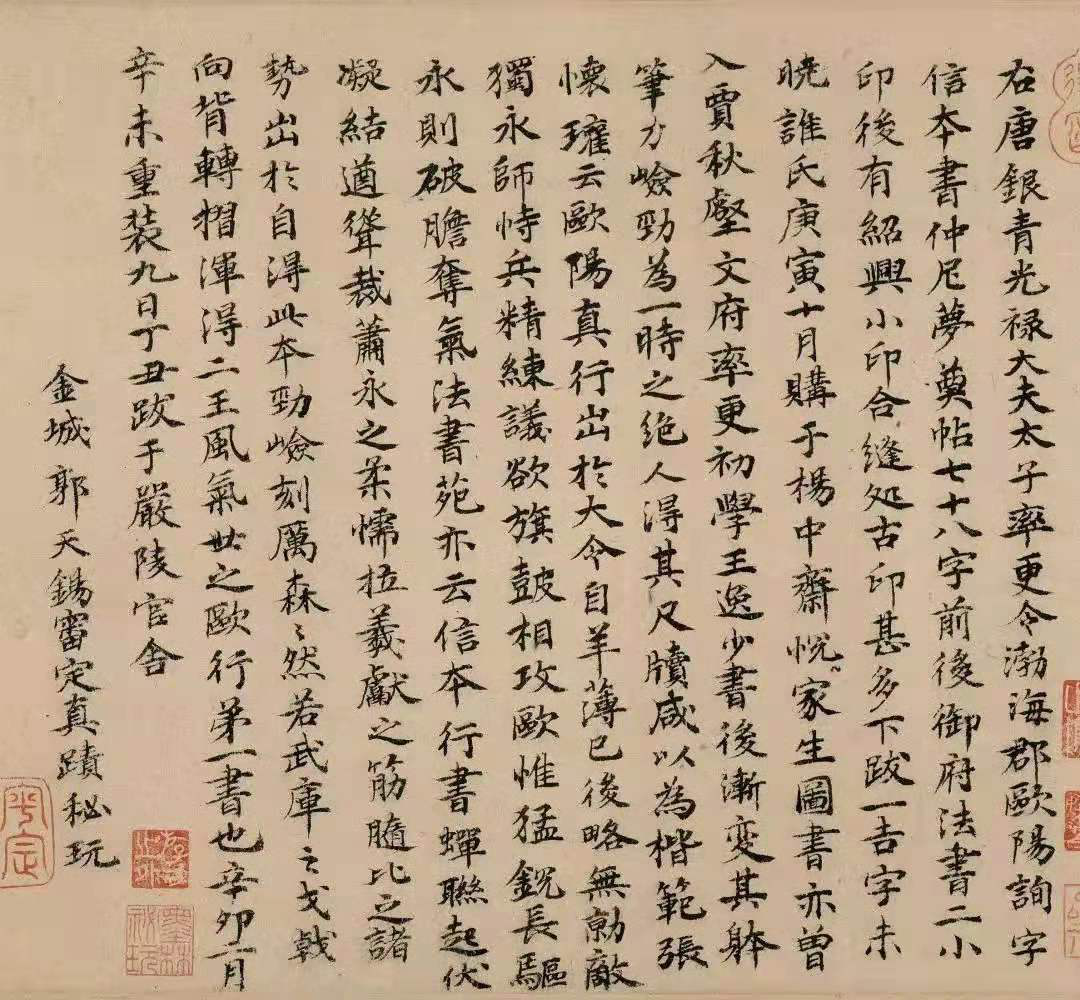 右唐銀青光禄大夫太子率更令渤海郡歐陽詢字
信本書仲尼夢奠帖七十八字前後御府法書二小
印後有紹興小印合縫处古印甚多下跋一吉字未
曉誰氏庚寅十月購于楊中齋悅家生圖書亦曾
入賈秋壑文府率更初學王逸少書後漸變其躰
筆力嶮勁為一時之绝人淂其尺牘咸以為楷範張
懷瓘云歐陽真行出於大令自羊薄已後略無勍敵
獨永師恃兵精練議欲旗鼓相攻歐惟猛銳長驅
永則破膽奪氣法書苑亦云信本行書蟬聯起伏
凝結遒聳裁蕭永之柔懦拉羲獻之筋髓比之諸
勢出於自得此本勁嶮刻厲森〻然若武庫之戈戟
向背轉摺渾淂二王風氣世之歐行第一書也辛卯二月
辛未重装九日丁丑跋于嚴陵官舍
金城郭天錫審定真蹟秘玩
平定